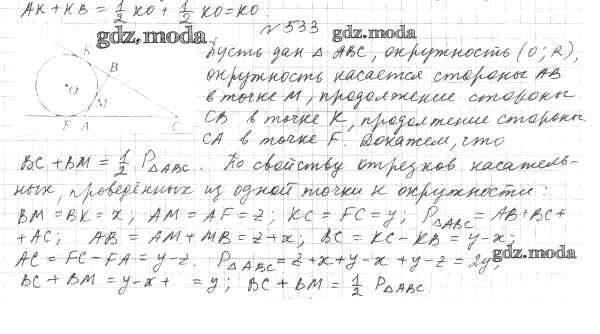 AK + KB = 1/2 KO + 1/2 KO = KO.
№ 533
gdz.moda
gdz.moda
Пусть дан △ ABC, окружность (O; R),
окружность касается стороны AB
в точке M, продолжение стороны
CB в точке K, продолжение стороны
CA в точке F. Докажем, что
K
B
O
M
F A C
BC + BM = 1/2 P△ABC. По свойству отрезков касатель-
ных, проведённых из одной точки к окружности:
BM = BK = x; AM = AF = z; KC = FC = y; P△ABC = AB + BC +
+ AC; AB = AM + MB = z + x; BC = KC - KB = y - x;
AC = FC - FA = y - z. P△ABC = z + x + y - x + y - z = 2y;
gdz.moda
BC + BM = y - x + = y; BC + BM = 1/2 P△ABC.